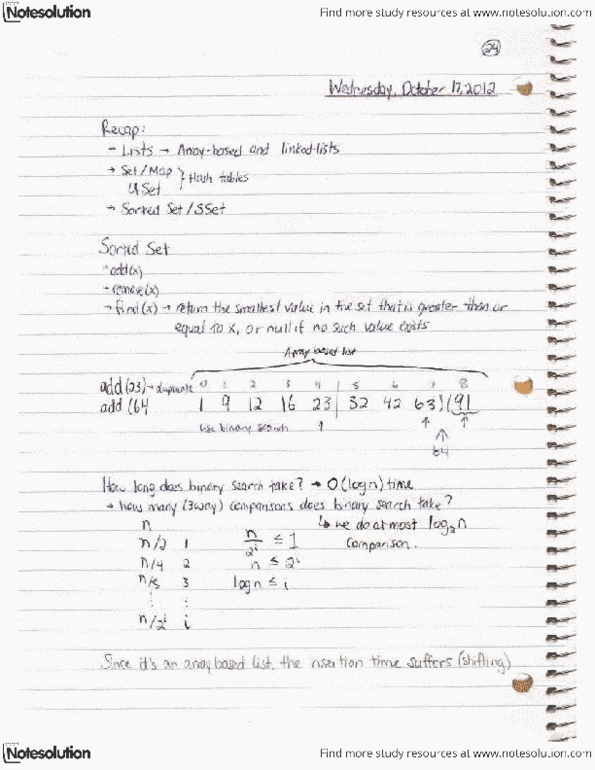 Notesolution
Find more study resources at www.notesolution.com
24
Wednesday, October 17, 2012
Recap:
- Lists → Array-based and linked-lists
→ Set/Map } Hash tables
USet
→ Sorted Set / SSet
Sorted Set
- add(x)
- remove(x)
- find(x) → return the smallest value in the set that is greater than or
equal to x, or null if no such value exists
Array based list
add(23) → duplicate 0 1 2 3 4 5 6 7 8
add (64 1 9 12 16 23 | 32 42 63)(91
use binary search ↑ ↑ ↑
64
How long does binary search take? → O(logn) time
→ how many (3way) comparisons does binary search take?
n ↳ we do at most log₂n
n/2 1 n/2ⁱ ≤ 1 comparison.
n/4 2 n ≤ 2ⁱ
n/8 3 logn ≤ i
⋮ ⋮
n/2ⁱ i
Since it's an array based list, the insertion time suffers (shifting)
Notesolution
Find more study resources at www.notesolution.com